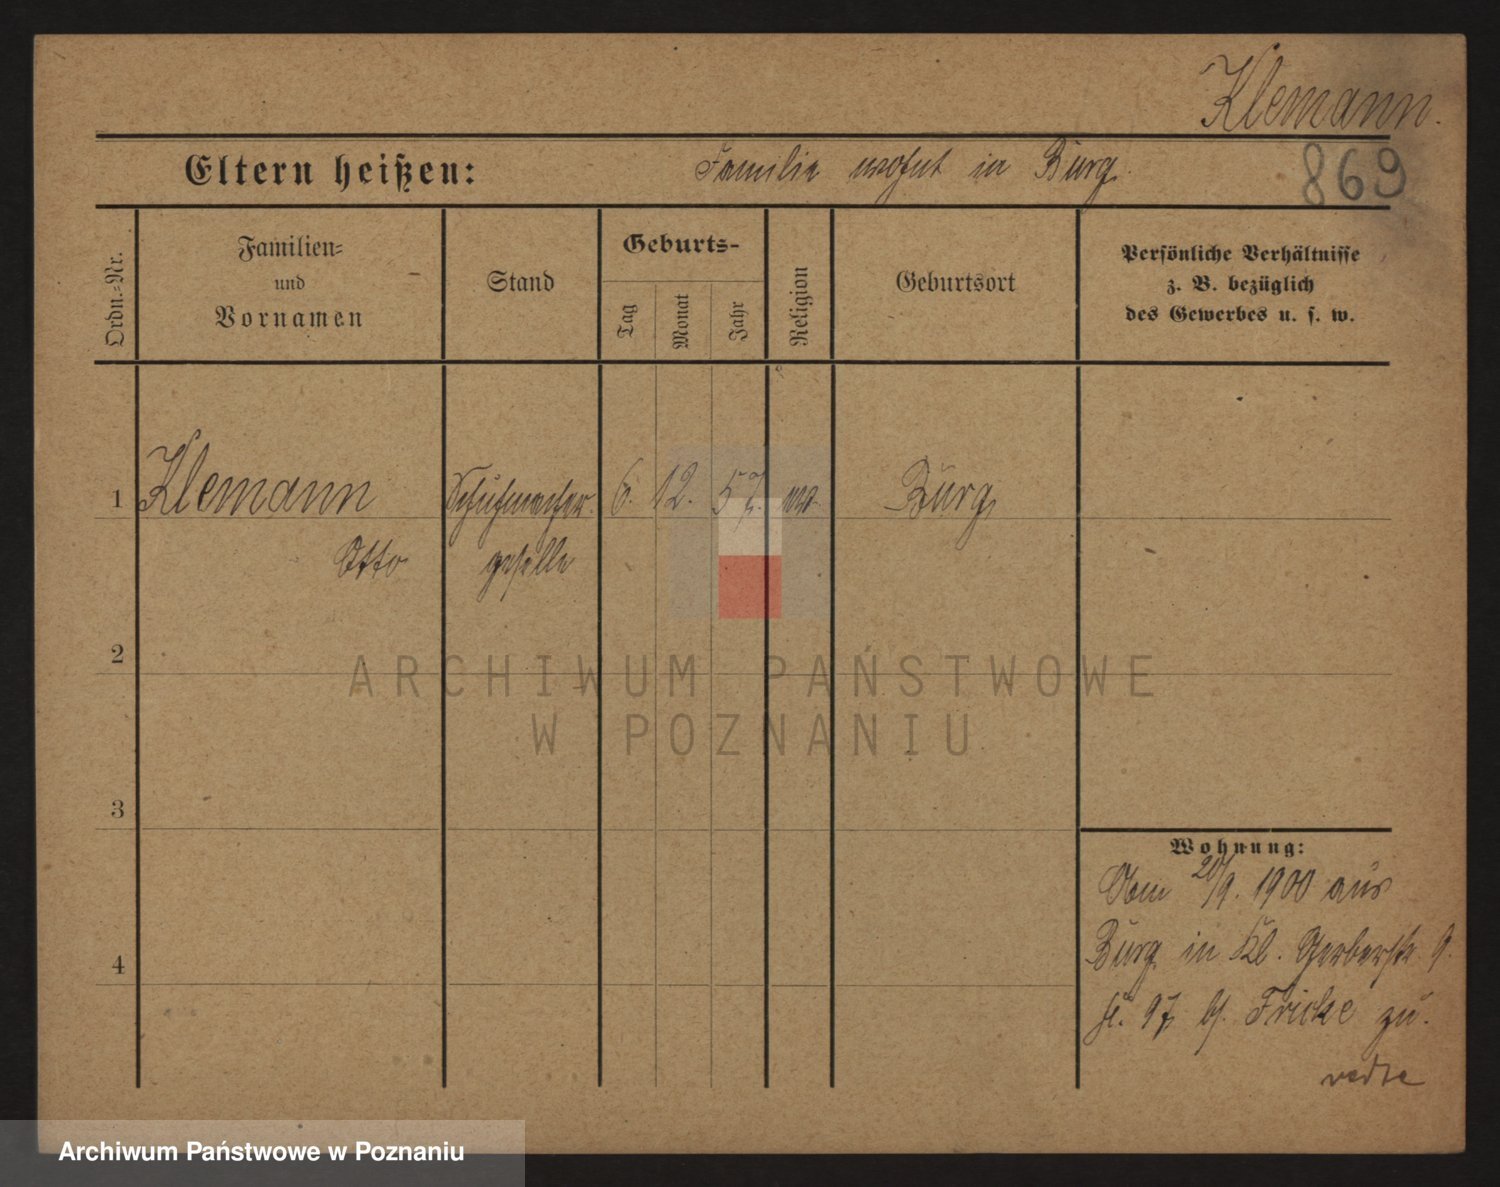 Klemann.
Eltern heißen: Familie wohnt in Burg.
869
Ordn.-Nr.
Familien-
und
Vornamen
Stand
Geburts-
Tag
Monat
Jahr
Religion
Geburtsort
Persönliche Verhältnisse
z. B. bezüglich
des Gewerbes u. s. w.
1 Klemann Schuhmacher- 6. 12. 57. ev. Burg
Otto geselle
2
3
4
Wohnung:
Vom 20/9. 1900 aus
Burg in Kl. Gerberstr. 9.
b/. Fricke zu.
ARCHIWUM PAŃSTWOWE
W POZNANIU
Archiwum Państwowe w Poznaniu